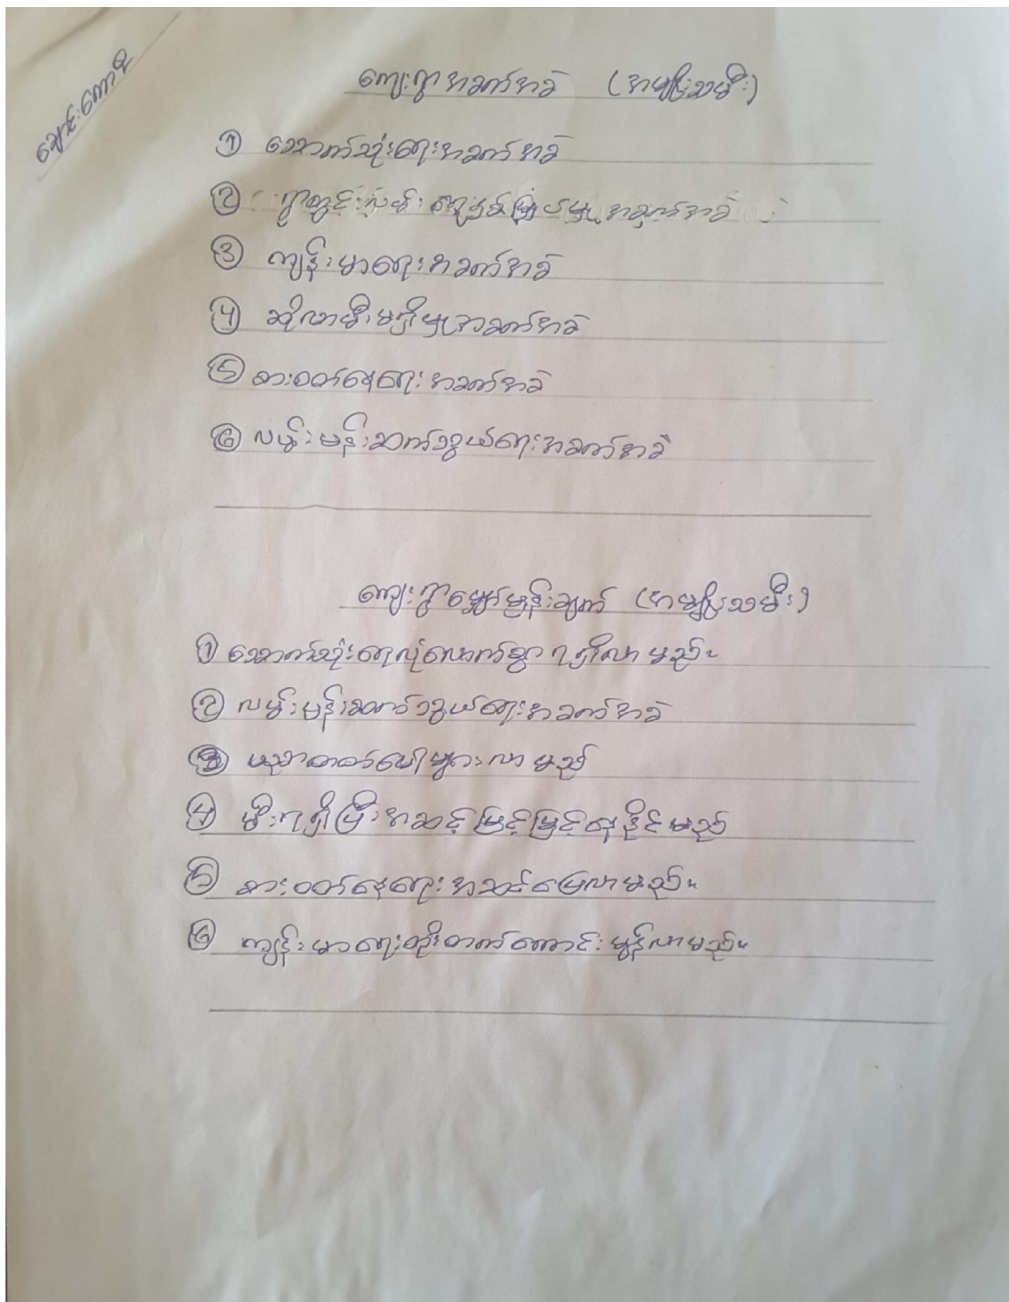 ကျေးရွာအခက်အခဲ (အမျိုးသမီး)
① သောက်သုံးရေးအခက်အခဲ
② ရွာတွင်းလမ်း အခက်အခဲ
③ ကျန်းမာရေးအခက်အခဲ
④ ဆိုလာမီးမရှိမှုအခက်အခဲ
⑤ စားဝတ်နေရေးအခက်အခဲ
⑥ လမ်းပန်းဆက်သွယ်ရေးအခက်အခဲ
ကျေးရွာမျှော်မှန်းချက် (အမျိုးသမီး)
① သောက်သုံးရေလုံလောက်စွာ ရရှိလာမည်။
② လမ်းပန်းဆက်သွယ်ရေးအခက်အခဲ
③ ပညာတတ်ပေါများလာမည်
④ မီးရရှိပြီးအဆင့်မြင့်မြင့်နေနိုင်မည်
⑤ စားဝတ်နေရေးအဆင်ပြေလာမည်။
⑥ ကျန်းမာရေးတိုးတက်ကောင်းမွန်လာမည်။